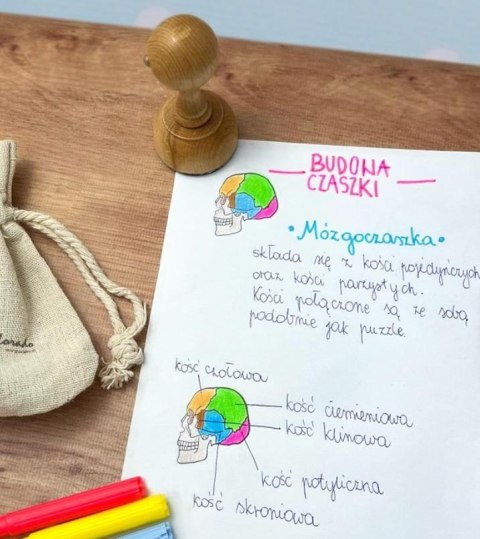 BUDOWA
CZASZKI
• Mózgoczaszka •
składa się z kości pojedyńczych
oraz kości parzystych.
Kości połączone są ze sobą
podobnie jak puzzle.
kość czołowa
kość ciemieniowa
kość klinowa
kość potyliczna
kość skroniowa